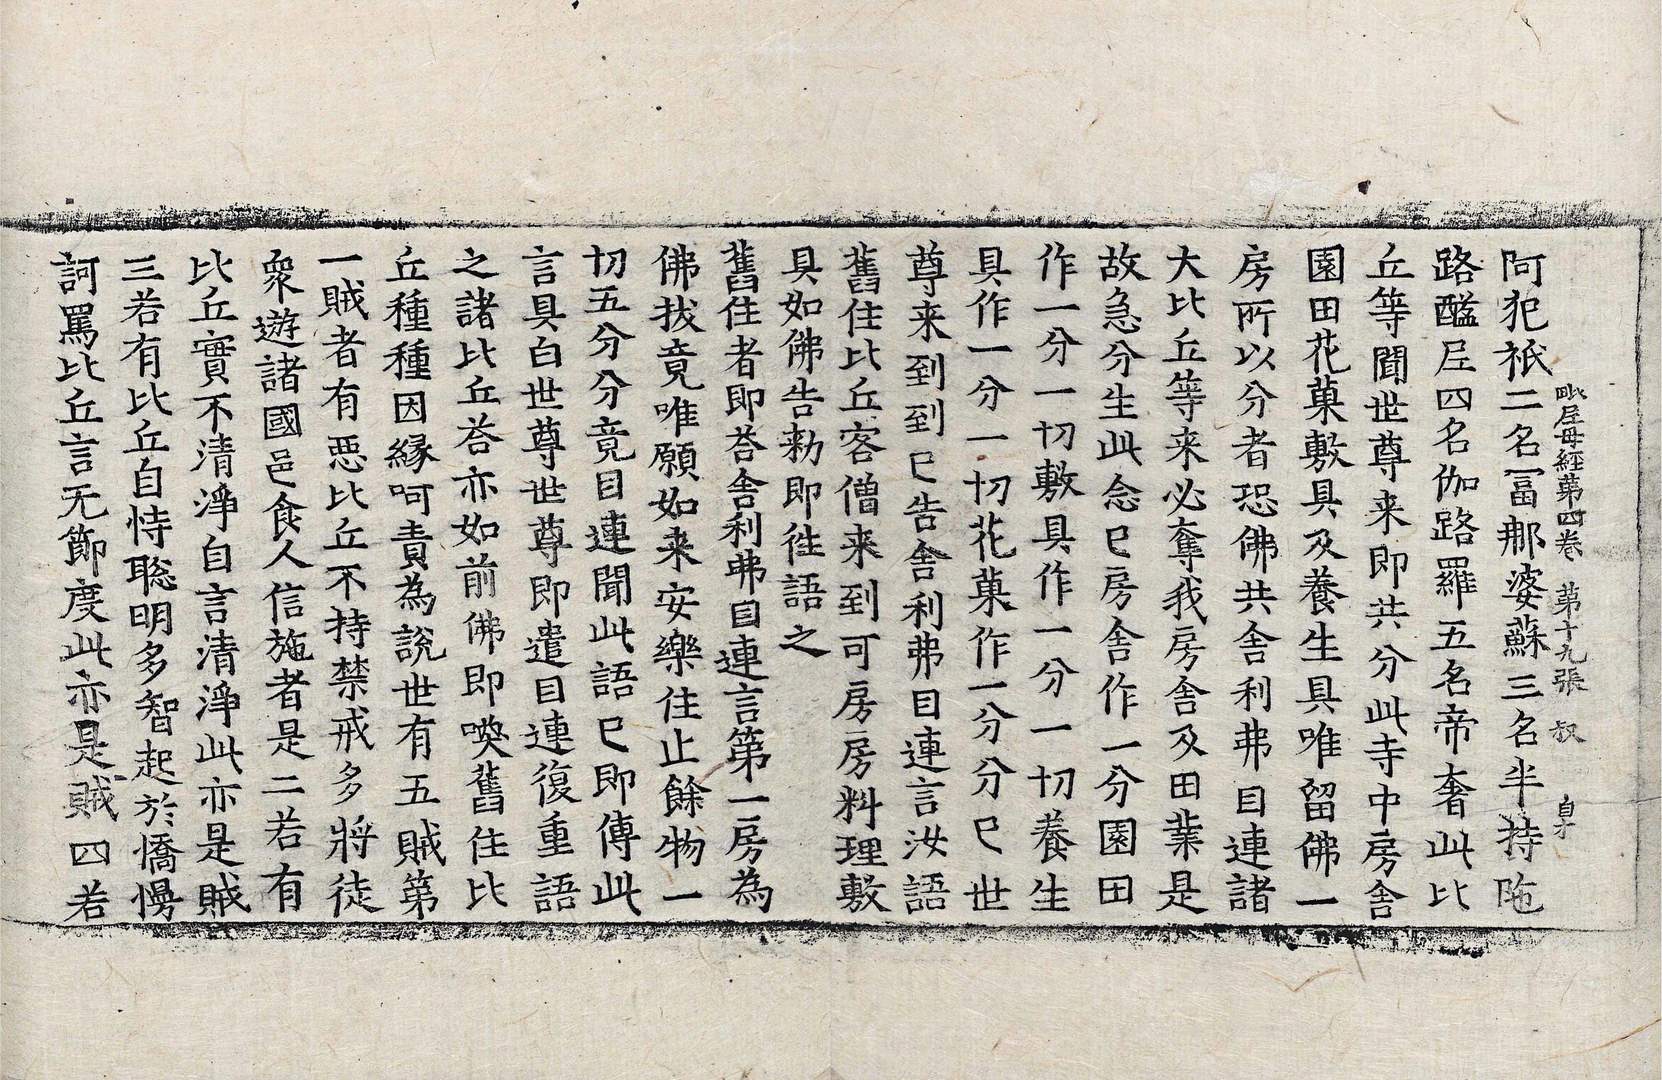 阿犯祇二名冨那婆蘇三名半持陁
毗尼母經第四卷 第十九張 叔
路醯尼四名伽路羅五名帝奢此比
丘等聞世尊来即共分此寺中房舎
園田花菓敷具及養生具唯留佛一
房所以分者恐佛共舎利弗目連諸
大比丘等来必奪我房舎及田業是
故急分生此念已房舎作一分園田
作一分一切敷具作一分一切養生
具作一分一切花菓作一分分已世
尊来到到已告舎利弗目連言汝語
舊住比丘客僧来到可房房料理敷
具如佛告勑即徃語之
舊住者即荅舎利弗目連言第一房為
佛拔竟唯願如来安樂住止餘物一
切五分分竟目連聞此語已即傳此
言具白世尊世尊即遣目連復重語
之諸比丘荅亦如前佛即喚舊住比
丘種種因縁呵責為說世有五賊第
一賊者有惡比丘不持禁戒多將徒
衆遊諸國邑食人信施者是二若有
比丘實不清淨自言清淨此亦是賊
三若有比丘自恃聡明多智起於憍慢
訶罵比丘言无節度此亦是賊四若